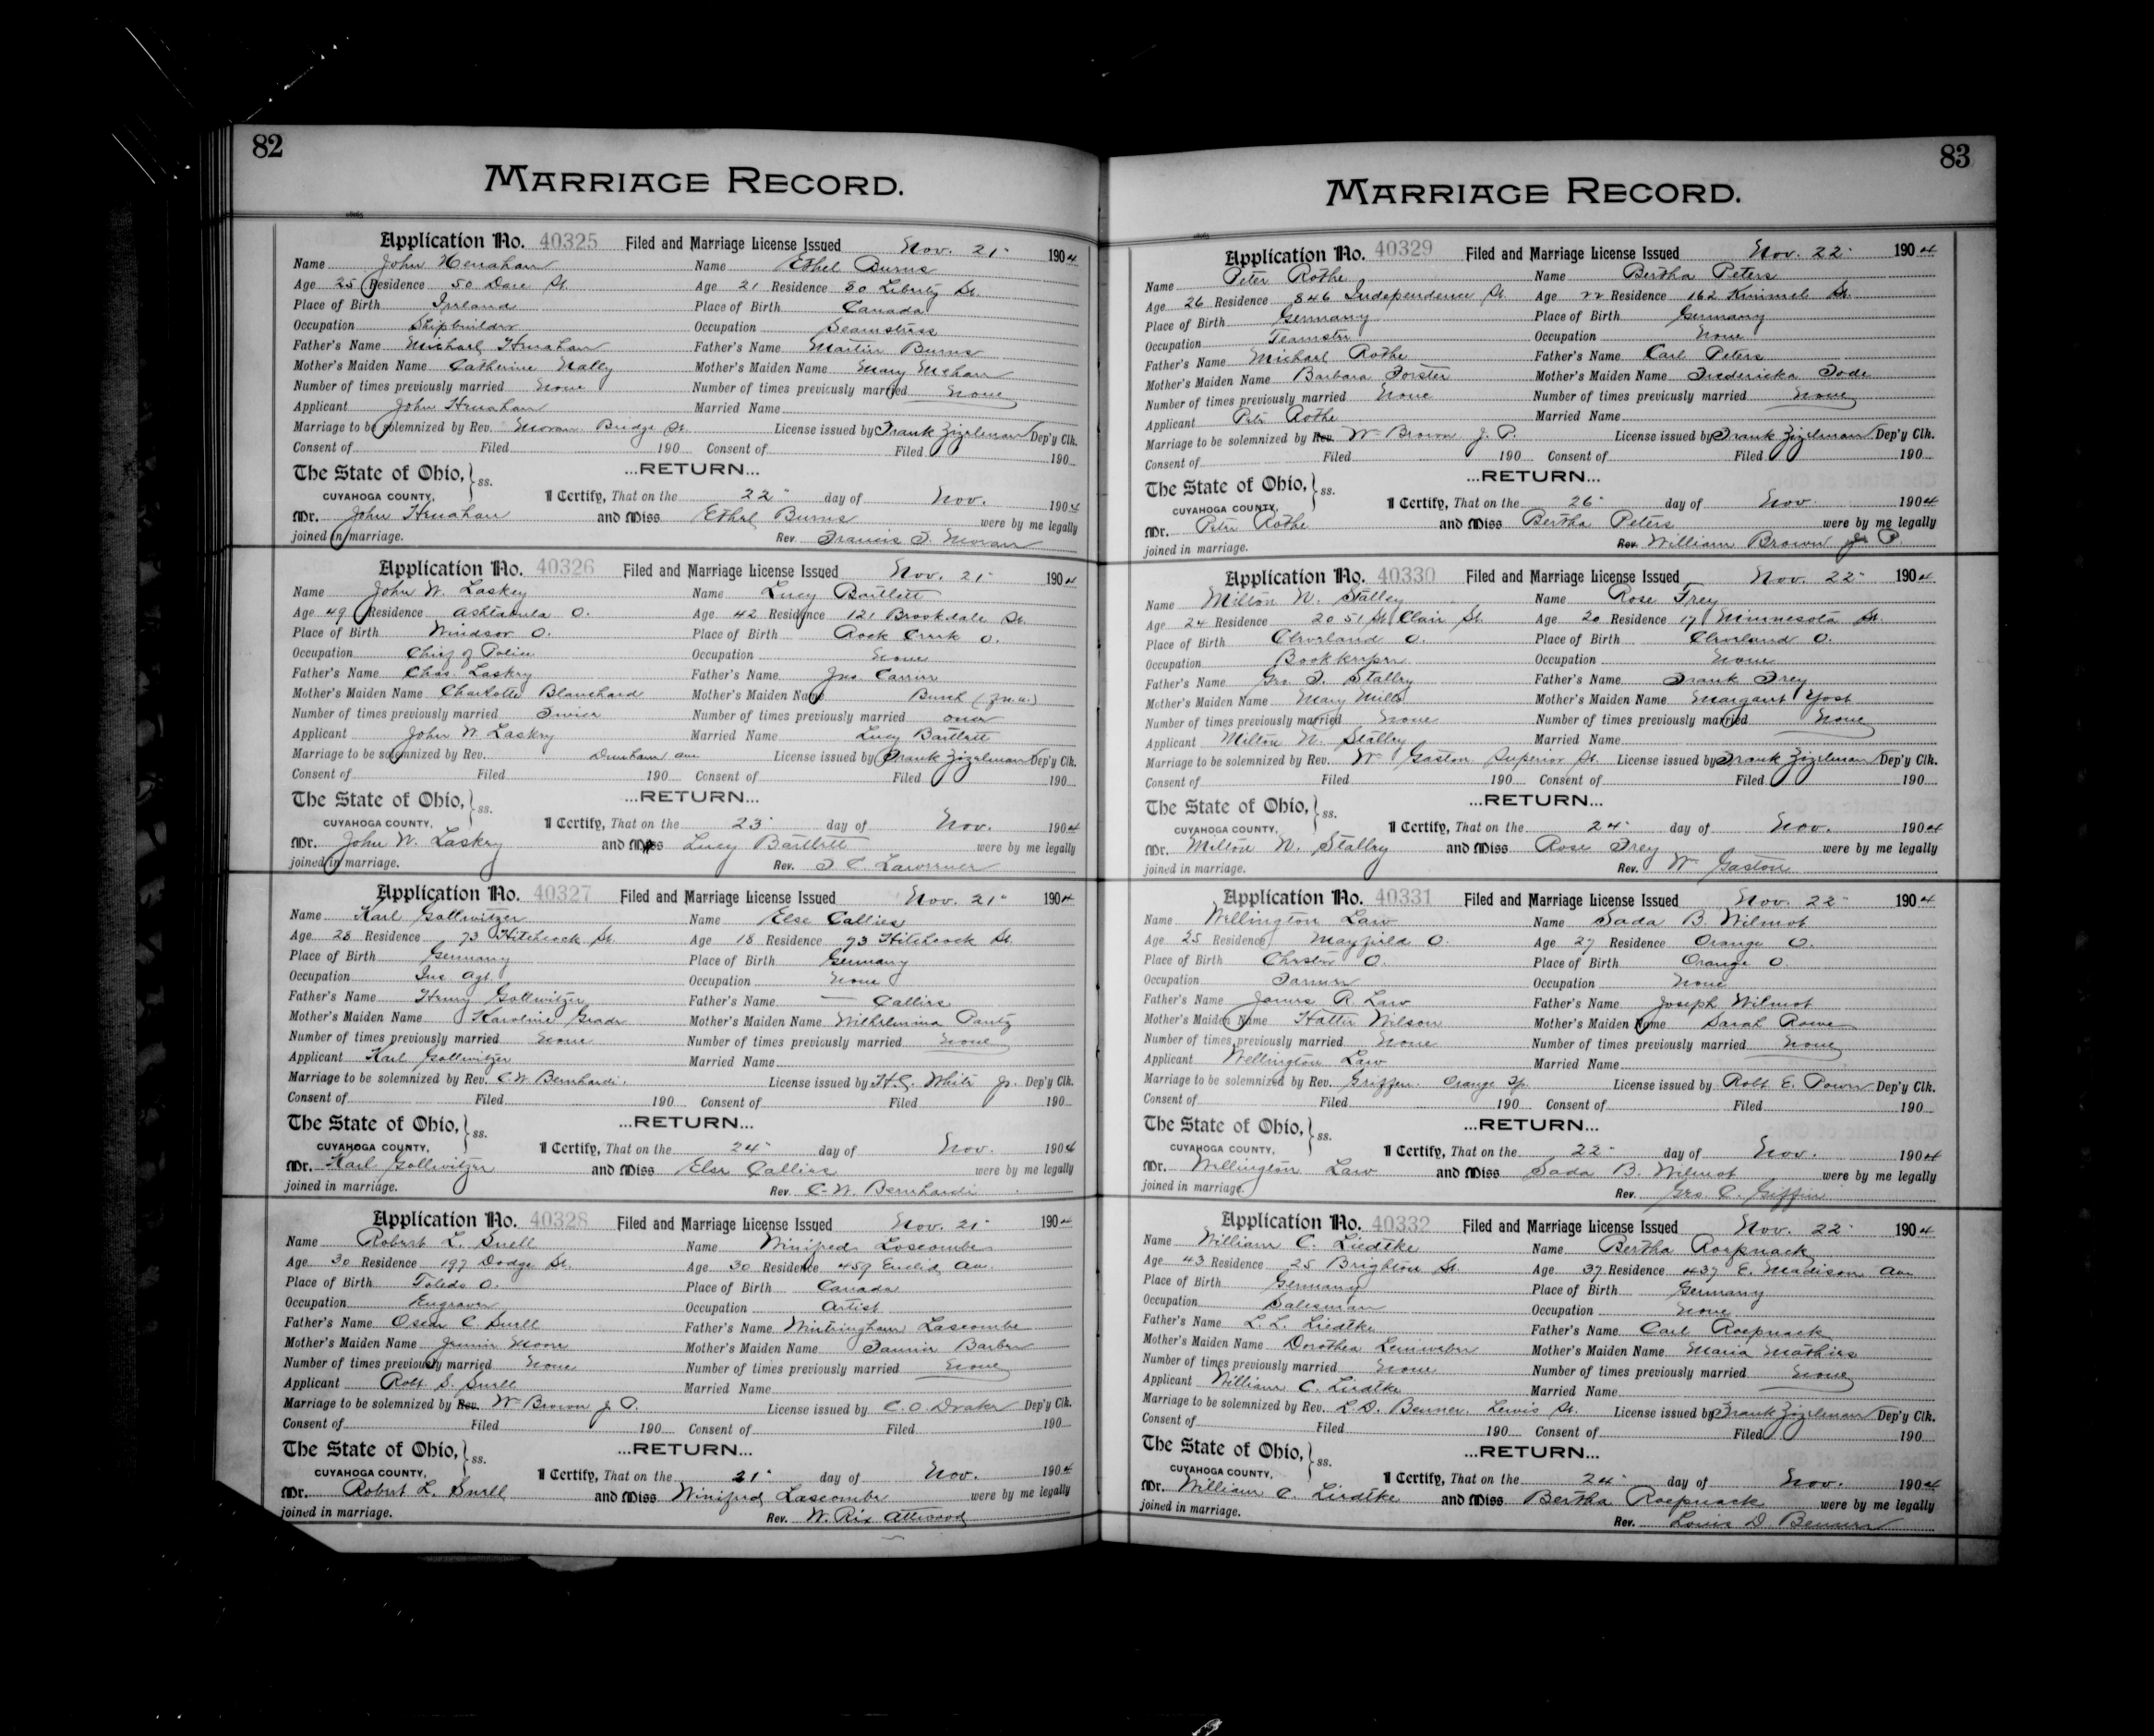 82
MARRIAGE RECORD.
Application No. 40325 Filed and Marriage License Issued Nov. 21" 1904
Name John Henahan Name Ethel Burns
Age 25 Residence 50 Dare St. Age 21 Residence 80 Liberty St.
Place of Birth Irland Place of Birth Canada
Occupation Shipbuilder Occupation Seamstress
Father's Name Michael Henahan Father's Name Martin Burns
Mother's Maiden Name Catherine Nally Mother's Maiden Name Mary Mehan
Number of times previously married None Number of times previously married None
Applicant John Henahan Married Name
Marriage to be solemnized by Rev. Moran Bridge St. License issued by Frank Zizelman Dep'y Clk.
Consent of Filed 190 Consent of Filed 190
The State of Ohio, } ss. ...RETURN...
CUYAHOGA COUNTY, I Certify, That on the 22" day of Nov. 1904
Mr. John Henahan and Miss Ethel Burns were by me legally
joined in marriage. Rev. Francis T. Moran
Application No. 40326 Filed and Marriage License Issued Nov. 21" 1904
Name John W. Laskey Name Lucy Bartlett
Age 49 Residence Ashtabula O. Age 42 Residence 121 Brookdale St.
Place of Birth Windsor O. Place of Birth Rock Creek O.
Occupation Chief of Police Occupation None
Father's Name Chas. Laskey Father's Name Jno. Carrier
Mother's Maiden Name Charlotte Blanchard Mother's Maiden Name Burch
Number of times previously married Twice Number of times previously married once
Applicant John W. Laskey Married Name Lucy Bartlett
Marriage to be solemnized by Rev. Dunham ave License issued by Frank Zizelman Dep'y Clk.
Consent of Filed 190 Consent of Filed 190
The State of Ohio, } ss. ...RETURN...
CUYAHOGA COUNTY, I Certify, That on the 23" day of Nov. 1904
Mr. John W. Laskey and Lucy Bartlett were by me legally
joined in marriage. Rev.
Application No. 40327 Filed and Marriage License Issued Nov. 21" 1904
Name Karl Gollwitzer Name Else Callies
Age 28 Residence 73 Hitchcock St. Age 18 Residence 73 Hitchcock St.
Place of Birth Germany Place of Birth Germany
Occupation Ins. Agt. Occupation None
Father's Name Henry Gollwitzer Father's Name — Callies
Mother's Maiden Name Karoline Mother's Maiden Name Wilhelmina Pautz
Number of times previously married None Number of times previously married None
Applicant Karl Gollwitzer Married Name
Marriage to be solemnized by Rev. C.W. Bernhardi. License issued by H.C. White Jr. Dep'y Clk.
Consent of Filed 190 Consent of Filed 190
The State of Ohio, } ss. ...RETURN...
CUYAHOGA COUNTY, I Certify, That on the 24" day of Nov. 1904
Mr. Karl Gollwitzer and Miss Else Callies were by me legally
joined in marriage. Rev. C.W. Bernhardi
Application No. 40328 Filed and Marriage License Issued Nov. 21" 1904
Name Robert L. Snell Name Winifred Loscombe
Age 30 Residence 197 Dodge St. Age 30 Residence 459 Euclid Av.
Place of Birth Toledo O. Place of Birth Canada
Occupation Engraver Occupation Artist
Father's Name Oscar C. Snell Father's Name Wintringham Lascombe
Mother's Maiden Name Jennie Moore Mother's Maiden Name Fannie Barber
Number of times previously married None Number of times previously married None
Applicant Robt. S. Snell Married Name
Marriage to be solemnized by Rev. Wm Brown J.P. License issued by C.O. Draker Dep'y Clk.
Consent of Filed 190 Consent of Filed 190
The State of Ohio, } ss. ...RETURN...
CUYAHOGA COUNTY, I Certify, That on the 21" day of Nov. 1904
Mr. Robert L. Snell and Miss Winifred Lascombe were by me legally
joined in marriage. Rev. W. Rix Attwood
83
MARRIAGE RECORD.
Application No. 40329 Filed and Marriage License Issued Nov. 22" 1904
Name Peter Rothe Name Bertha Peters
Age 26 Residence 846 Independence St. Age 22 Residence 162 Kimmel St.
Place of Birth Germany Place of Birth Germany
Occupation Teamster Occupation None
Father's Name Michael Rothe Father's Name Carl Peters
Mother's Maiden Name Barbara Forster Mother's Maiden Name Fredericka Tode
Number of times previously married None Number of times previously married None
Applicant Peter Rothe Married Name
Marriage to be solemnized by Rev. Wm Brown J.P. License issued by Frank Zizelman Dep'y Clk.
Consent of Filed 190 Consent of Filed 190
The State of Ohio, } ss. ...RETURN...
CUYAHOGA COUNTY, I Certify, That on the 26" day of Nov. 1904
Mr. Peter Rothe and Miss Bertha Peters were by me legally
joined in marriage. Rev. William Brown J.P.
Application No. 40330 Filed and Marriage License Issued Nov. 22" 1904
Name Milton N. Stalley Name Rose Frey
Age 24 Residence 2051 St. Clair St. Age 20 Residence 17 Minnesota St.
Place of Birth Cleveland O. Place of Birth Cleveland O.
Occupation Bookkeeper Occupation None
Father's Name Geo. F. Stalley Father's Name Frank Frey
Mother's Maiden Name Mary Mills Mother's Maiden Name Margaret Yost
Number of times previously married None Number of times previously married None
Applicant Milton N. Stalley Married Name
Marriage to be solemnized by Rev. Wm Gaston Superior St. License issued by Frank Zizelman Dep'y Clk.
Consent of Filed 190 Consent of Filed 190
The State of Ohio, } ss. ...RETURN...
CUYAHOGA COUNTY, I Certify, That on the 24" day of Nov. 1904
Mr. Milton N. Stalley and Miss Rose Frey were by me legally
joined in marriage. Rev. Wm Gaston
Application No. 40331 Filed and Marriage License Issued Nov. 22" 1904
Name Wellington Law Name Sada B. Wilmot
Age 25 Residence Mayfield O. Age 27 Residence Orange O.
Place of Birth Chester O. Place of Birth Orange O.
Occupation Farmer Occupation None
Father's Name James R. Law Father's Name Joseph Wilmot
Mother's Maiden Name Hattie Wilson Mother's Maiden Name Sarah Rowe
Number of times previously married None Number of times previously married None
Applicant Wellington Law Married Name
Marriage to be solemnized by Rev. Griffen. Orange Tp. License issued by Robt. E. Dep'y Clk.
Consent of Filed 190 Consent of Filed 190
The State of Ohio, } ss. ...RETURN...
CUYAHOGA COUNTY, I Certify, That on the 22" day of Nov. 1904
Mr. Wellington Law and Miss Sada B. Wilmot were by me legally
joined in marriage. Rev. Geo. C. Giffin
Application No. 40332 Filed and Marriage License Issued Nov. 22" 1904
Name William C. Liedtke Name Bertha Roepnack
Age 43 Residence 25 Brighton St. Age 37 Residence 437 E. Madison Ave
Place of Birth Germany Place of Birth Germany
Occupation Salesman Occupation None
Father's Name L. L. Liedtke Father's Name Carl Roepnack
Mother's Maiden Name Dorothea Mother's Maiden Name Maria Mathies
Number of times previously married None Number of times previously married None
Applicant William C. Liedtke Married Name
Marriage to be solemnized by Rev. L.D. Benner. Lewis St. License issued by Frank Zizelman Dep'y Clk.
Consent of Filed 190 Consent of Filed 190
The State of Ohio, } ss. ...RETURN...
CUYAHOGA COUNTY, I Certify, That on the 24" day of Nov. 1904
Mr. William C. Liedtke and Miss Bertha Roepnack were by me legally
joined in marriage. Rev. Louis D. Benner